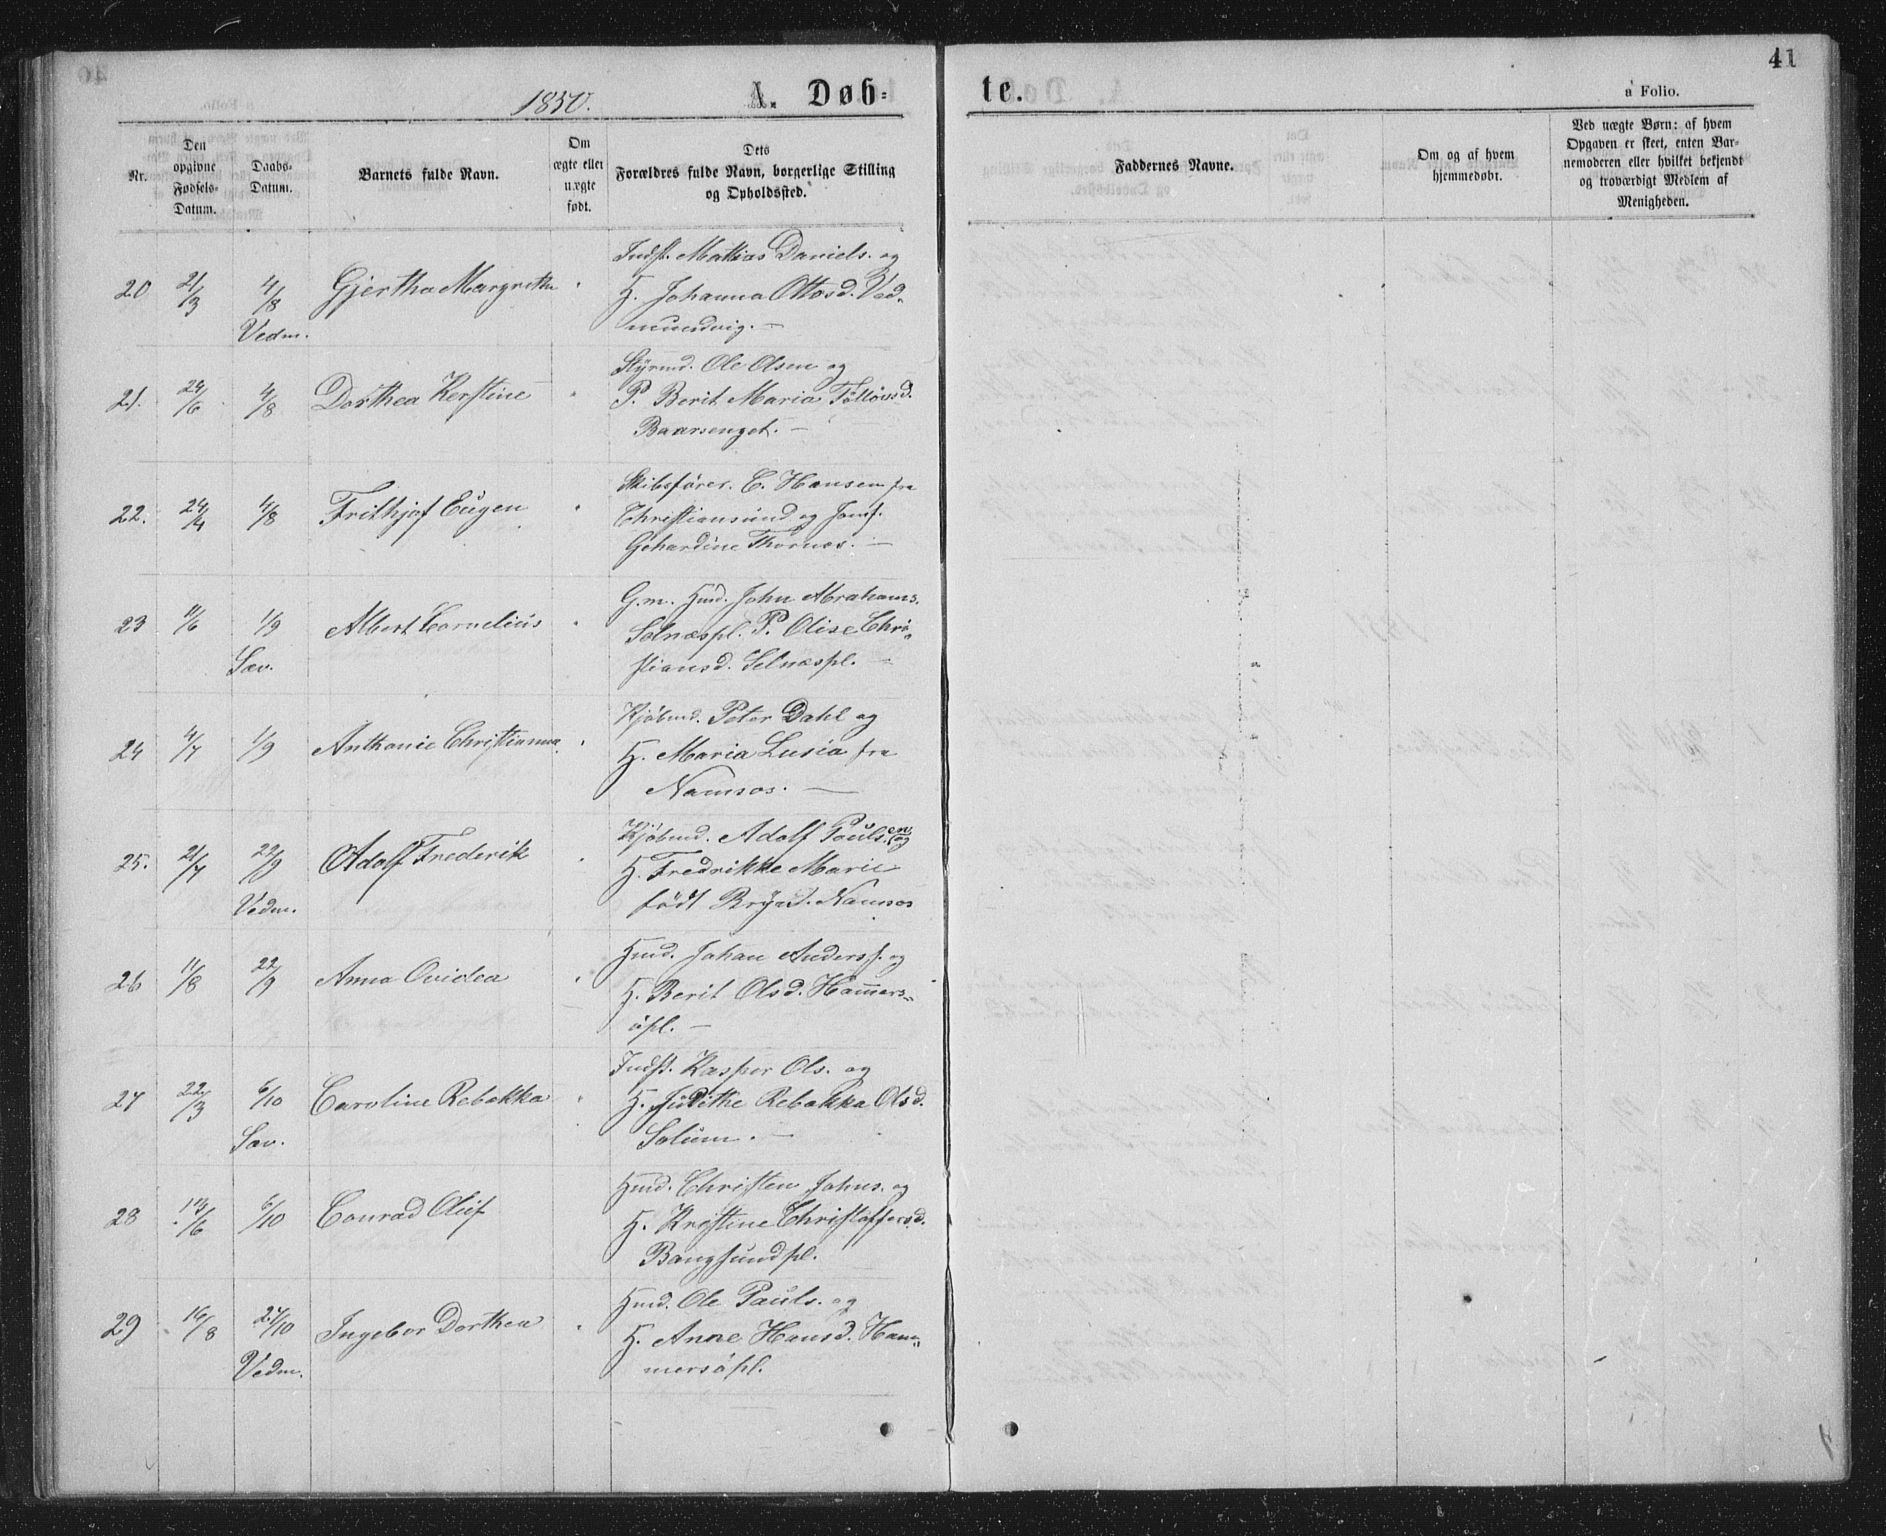 41
1850. A. Døb=te.
a Folio.
Nr.
Den opgivne Fødsels-Datum.
Daabs-Datum.
Barnets fulde Navn.
Om ægte eller uægte født.
Dets Forældres fulde Navn, borgerlige Stilling og Opholdssted.
Faddernes Navne.
Om og af hvem hjemmedøbt.
Ved uægte Børn: af hvem Opgaven er skeet, enten Barnemoderen eller hvilket bekjendt og troværdigt Medlem af Menigheden.
Indst. Mathias Daniels. og
20 21/3 4/8 Gjertha Margretha H. Johanna Ottosd. Ved-
Vedm. mundvig. —
Styrmd. Ole Olsen og
21. 24/6 4/8 Dorthea Kerstine P. Berit Maria Tølløvsd.
Baarsenget. —
Skibsfører. C. Hansen fra
22. 24/4 4/8 Frithjof Eugen Christiansund og Jomf.
Gehardine Thornæs. —
G.m. Hmd. John Abrahams.
23 11/6 1/9 Albert Cornelius Selnæspl. P. Olise Chri-
Sæv. stiansd. Selnæspl. —
Kjøbmd. Peter Dahl og
24 4/7 1/9 Anthonie Christianna H. Maria Lusia fra
Namsos. —
Kjøbmd. Adolf Pauls. en og
25. 21/7 22/9 Adolf Frederik H. Fredrikke Marie
Vedm. født Brynd. Namsos
Hmd. Johan Anders. og
26 11/8 22/9 Anna Ovidea H. Berit Olsd. Hammers-
öpl. —
Indst. Kasper Ols. og
27 22/3 6/10 Caroline Rebekka H. Judithe Rebekka Olsd.
Sæv. Solum. —
Hmd. Christen Johns. og
28 13/6 6/10 Conrad Oluf H. Kristine Christoffersd.
Bangsundpl.
Hmd. Ole Pauls. og
29 16/8 27/10 Ingebor Dorthea H. Anne Hansd. Ham-
Vedm. mersöpl.